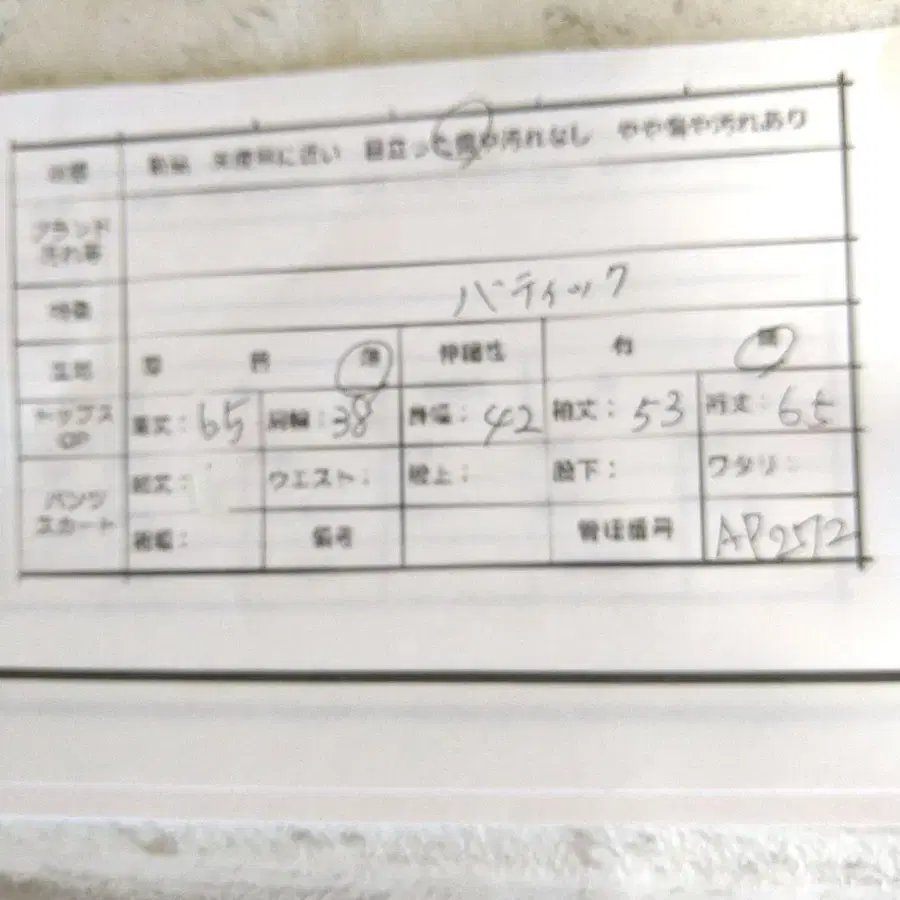 状態 新品 未使用に近い 目立った傷や汚れなし やや傷や汚れあり
ブランド
汚れ等
特徴 バティック
生地 厚 普 薄 伸縮性 有 無
トップス
OP
着丈: 65 肩幅: 38 身幅: 42 袖丈: 53 裄丈: 65
パンツ
スカート
総丈: ウエスト: 股上: 股下: ワタリ:
裾幅: 備考 管理番号 AP2572